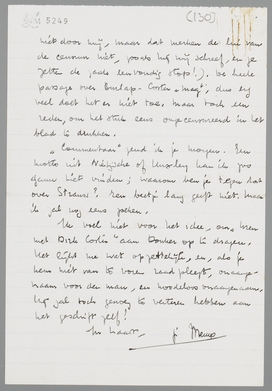 5249
(130)
niet door mij, maar dat merken de lui van
de censuur niet, zooals hij mij schreef, en je
zetten de zaak eenvoudig stop!). De heele
passage over Dunlap-Coster "mag"; dus zij
veel doet het er niet toe, maar toch een
reden, om het stuk eens ongecensureerd in het
blad te drukken.
"Commentaar" zend ik je morgen. Een
motto uit Nietzsche of Huxley kan ik zoo
gauw niet vinden; waarom ben je tegen dat
over Strauss? Een beetje lang zeker niet, maar
ik zal nog eens zoeken.
Ik voel niet voor het idee, om
met Dirk Coster aan Donker op te dragen.
Het lijkt me wat opzettelijk, en, als je
hem niet van te voren raadpleegt, onaange-
naam voor den man, en noodeloos onaangenaam.
Hij zal toch genoeg te verteren hebben aan
het geschrift zelf!
In haast, je Menno